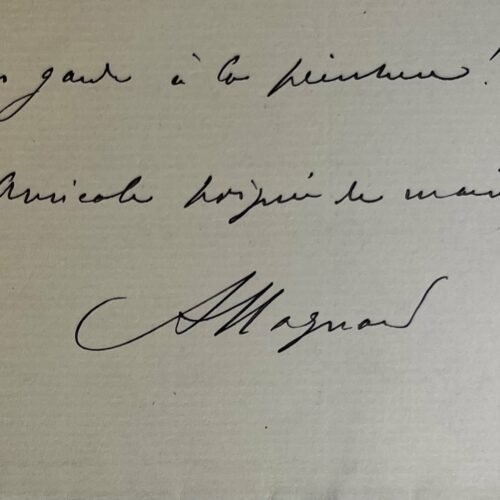 garde à la peinture !
Amicale poignée de main
AMagnard